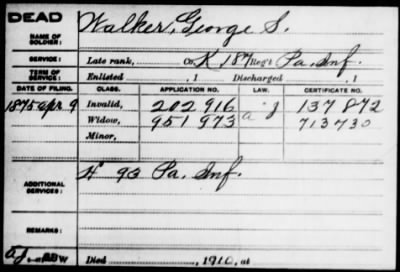 DEAD
NAME OF SOLDIER: Walker, George S.
SERVICE: Late rank, Co. K 187 Reg't Pa. Inf.
TERM OF SERVICE: Enlisted , 1 Discharged , 1
DATE OF FILING. CLASS. APPLICATION NO. LAW. CERTIFICATE NO.
1875 Apr 9 Invalid, 202 916 137 872
Widow, 951 973 713730
Minor,
ADDITIONAL SERVICES: H 93 Pa. Inf.
REMARKS:
Died , 1910, at